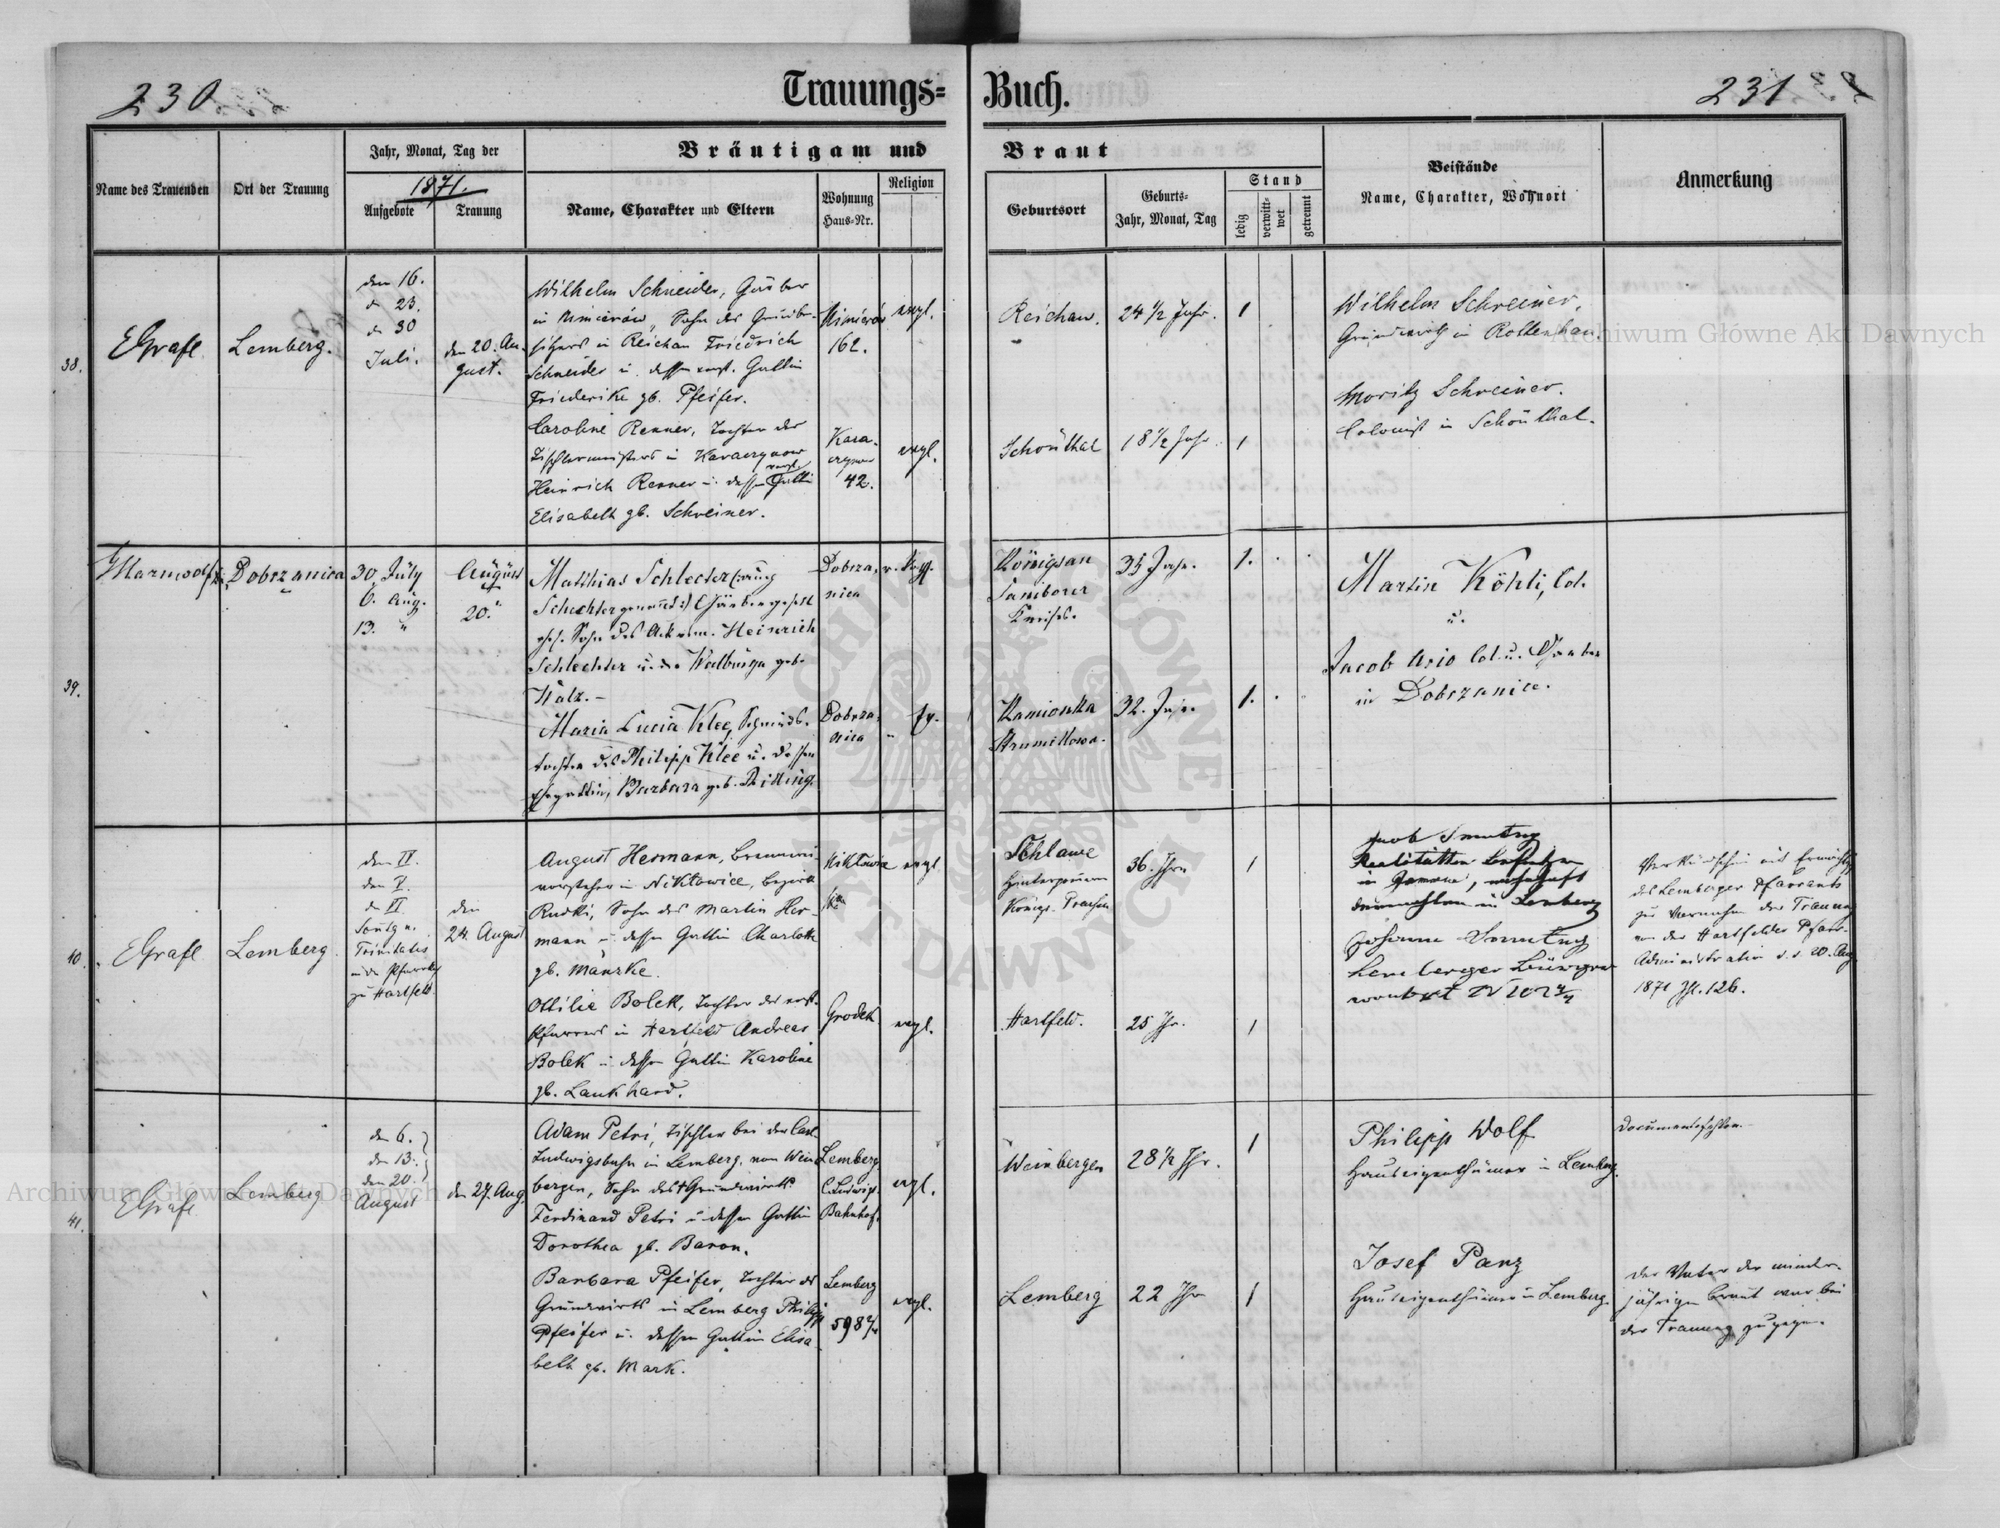 230
Trauungs= Buch.
231
Name des Trauenden
Ort der Trauung
Jahr, Monat, Tag der
1871.
Aufgebote
Trauung
Bräutigam und Braut
Name, Charakter und Eltern
Wohnung
Haus-Nr.
Religion
Geburtsort
Geburts=
Jahr, Monat, Tag
Stand
ledig
verwitt=
wet
getrennt
Beistände
Name, Charakter, Wohnort
Anmerkung
38.
EGrafl
Lemberg.
den 16.
d. 23.
d. 30
Juli.
den 20. Au-
gust.
Wilhelm Schneider, Gärber
in Nimierów, Sohn des Grundbe-
sitzers in Reichau Friedrich
Schneider u. dessen verst. Gattin
Friederike gb. Pfeifer.
Nimierów
162.
evgl.
Reichau.
24 1/2 Jahr.
1
Wilhelm Schreiner,
Grundwirth in Rottenhan
Moritz Schreiner.
Colonist in Schönthal.
Caroline Renner, Tochter des
Tischlermeisters in Karaczynow
Heinrich Renner u. dessen verst. Gattin
Elisabeth gb. Schreiner.
Kara-
czynow
42.
evgl.
Schönthal
18 1/2 Jahr
1
39.
Dobrzanica
30. July
6. Aug.
13. "
August
20.
Matthias Schlechter (sonst
Schechter genannt:) Gärbergesell
ehel. Sohn des Ackerm. Heinrich
Schlechter u. der Walburga geb.
Walz. –
Dobrza-
nica
Königsau
Samborer
Kreises.
35 Jahr.
1.
Martin Köhli, Col.
u.
Jacob Asio Col. u. Gärber
in Dobrzanica.
Maria Lucia Klee, Schmieds-
tochter des Philipp Klee u. dessen
Ehegattin, Barbara geb.
Dobrza-
nica
Kamionka
Strumilowa.
32. Jahr
1.
40.
EGrafl
Lemberg
den IV.
den V.
d. VI
Sontg n.
Trinitatis
in der Pfarrkch
zu Hartfeld.
den
24. August
August Hermann, Brennerei-
vorsteher in Niklowice, Bezirk
Rudki, Sohn des Martin Her-
mann u. dessen Gattin Charlotte
gb. Manzke.
Niklowice
evgl
Schlawe
Hinterpomern
Königr. Preußen
36. Jhre
1
Jacob Smutny
Realitäten Besitzer
in Lemberg
Johann Smutny
Lemberger Bürger
wonhaft
des Lemberger Pfarramts
zur Vornahme der Trauung
von der Hartfelder Pfarr-
Administration d. d. 20. Aug.
1871 Zhl. 126.
Ottilie Bolek, Tochter des verst.
Pfarrers in Hartfeld Andreas
Bolek u. dessen Gattin Karoline
gb. Laukhard.
Grodek
evgl.
Hartfeld.
25 Jhr.
1
41.
EGrafl
Lemberg
den 6.
den 13.
den 20.
August
den 27. Aug.
Adam Petri, Tischler bei der Carl-
Ludwigsbahn in Lemberg, von Wein-
bergen, Sohn des † Grundwirts
Ferdinand Petri u. dessen Gattin
Dorothea gb. Baron.
Lemberg
C. Ludwigs-
Bahnhof.
evgl.
Weinbergen
28 1/2 Jhr.
1
Philipp Wolf
Hauseigenthümer in Lemberg.
Barbara Pfeifer, Tochter des
Grundwirts in Lemberg Philipp
Pfeifer u. dessen Gattin Elisa-
beth gb. Mark.
Lemberg
598 2/4
evgl.
Lemberg
22 Jhr
1
Josef Panz
Hauseigenthümer in Lemberg.
Der Vater der minder-
jährigen Braut war bei
der Trauung zugegen.
Archiwum Główne Akt Dawnych
Archiwum Główne Akt Dawnych
ARCHIWUM GŁÓWNE AKT DAWNYCH